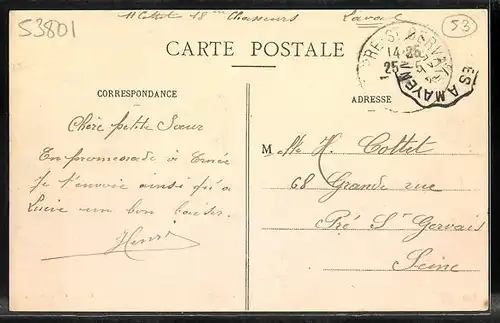 53801
H Cottet 18me Chasseurs Laval
53
CARTE POSTALE
LE PRE-ST GERVAIS
14-25
25-5
ES A MAYEN
CORRESPONDANCE
ADRESSE
Chère petite Sœur
En promenade à Ernée
Je t'envoie ainsi qu'a
Lucie un bon baiser.
Henri
Melle H. Cottet
68 Grande rue
Pré St Gervais
Seine